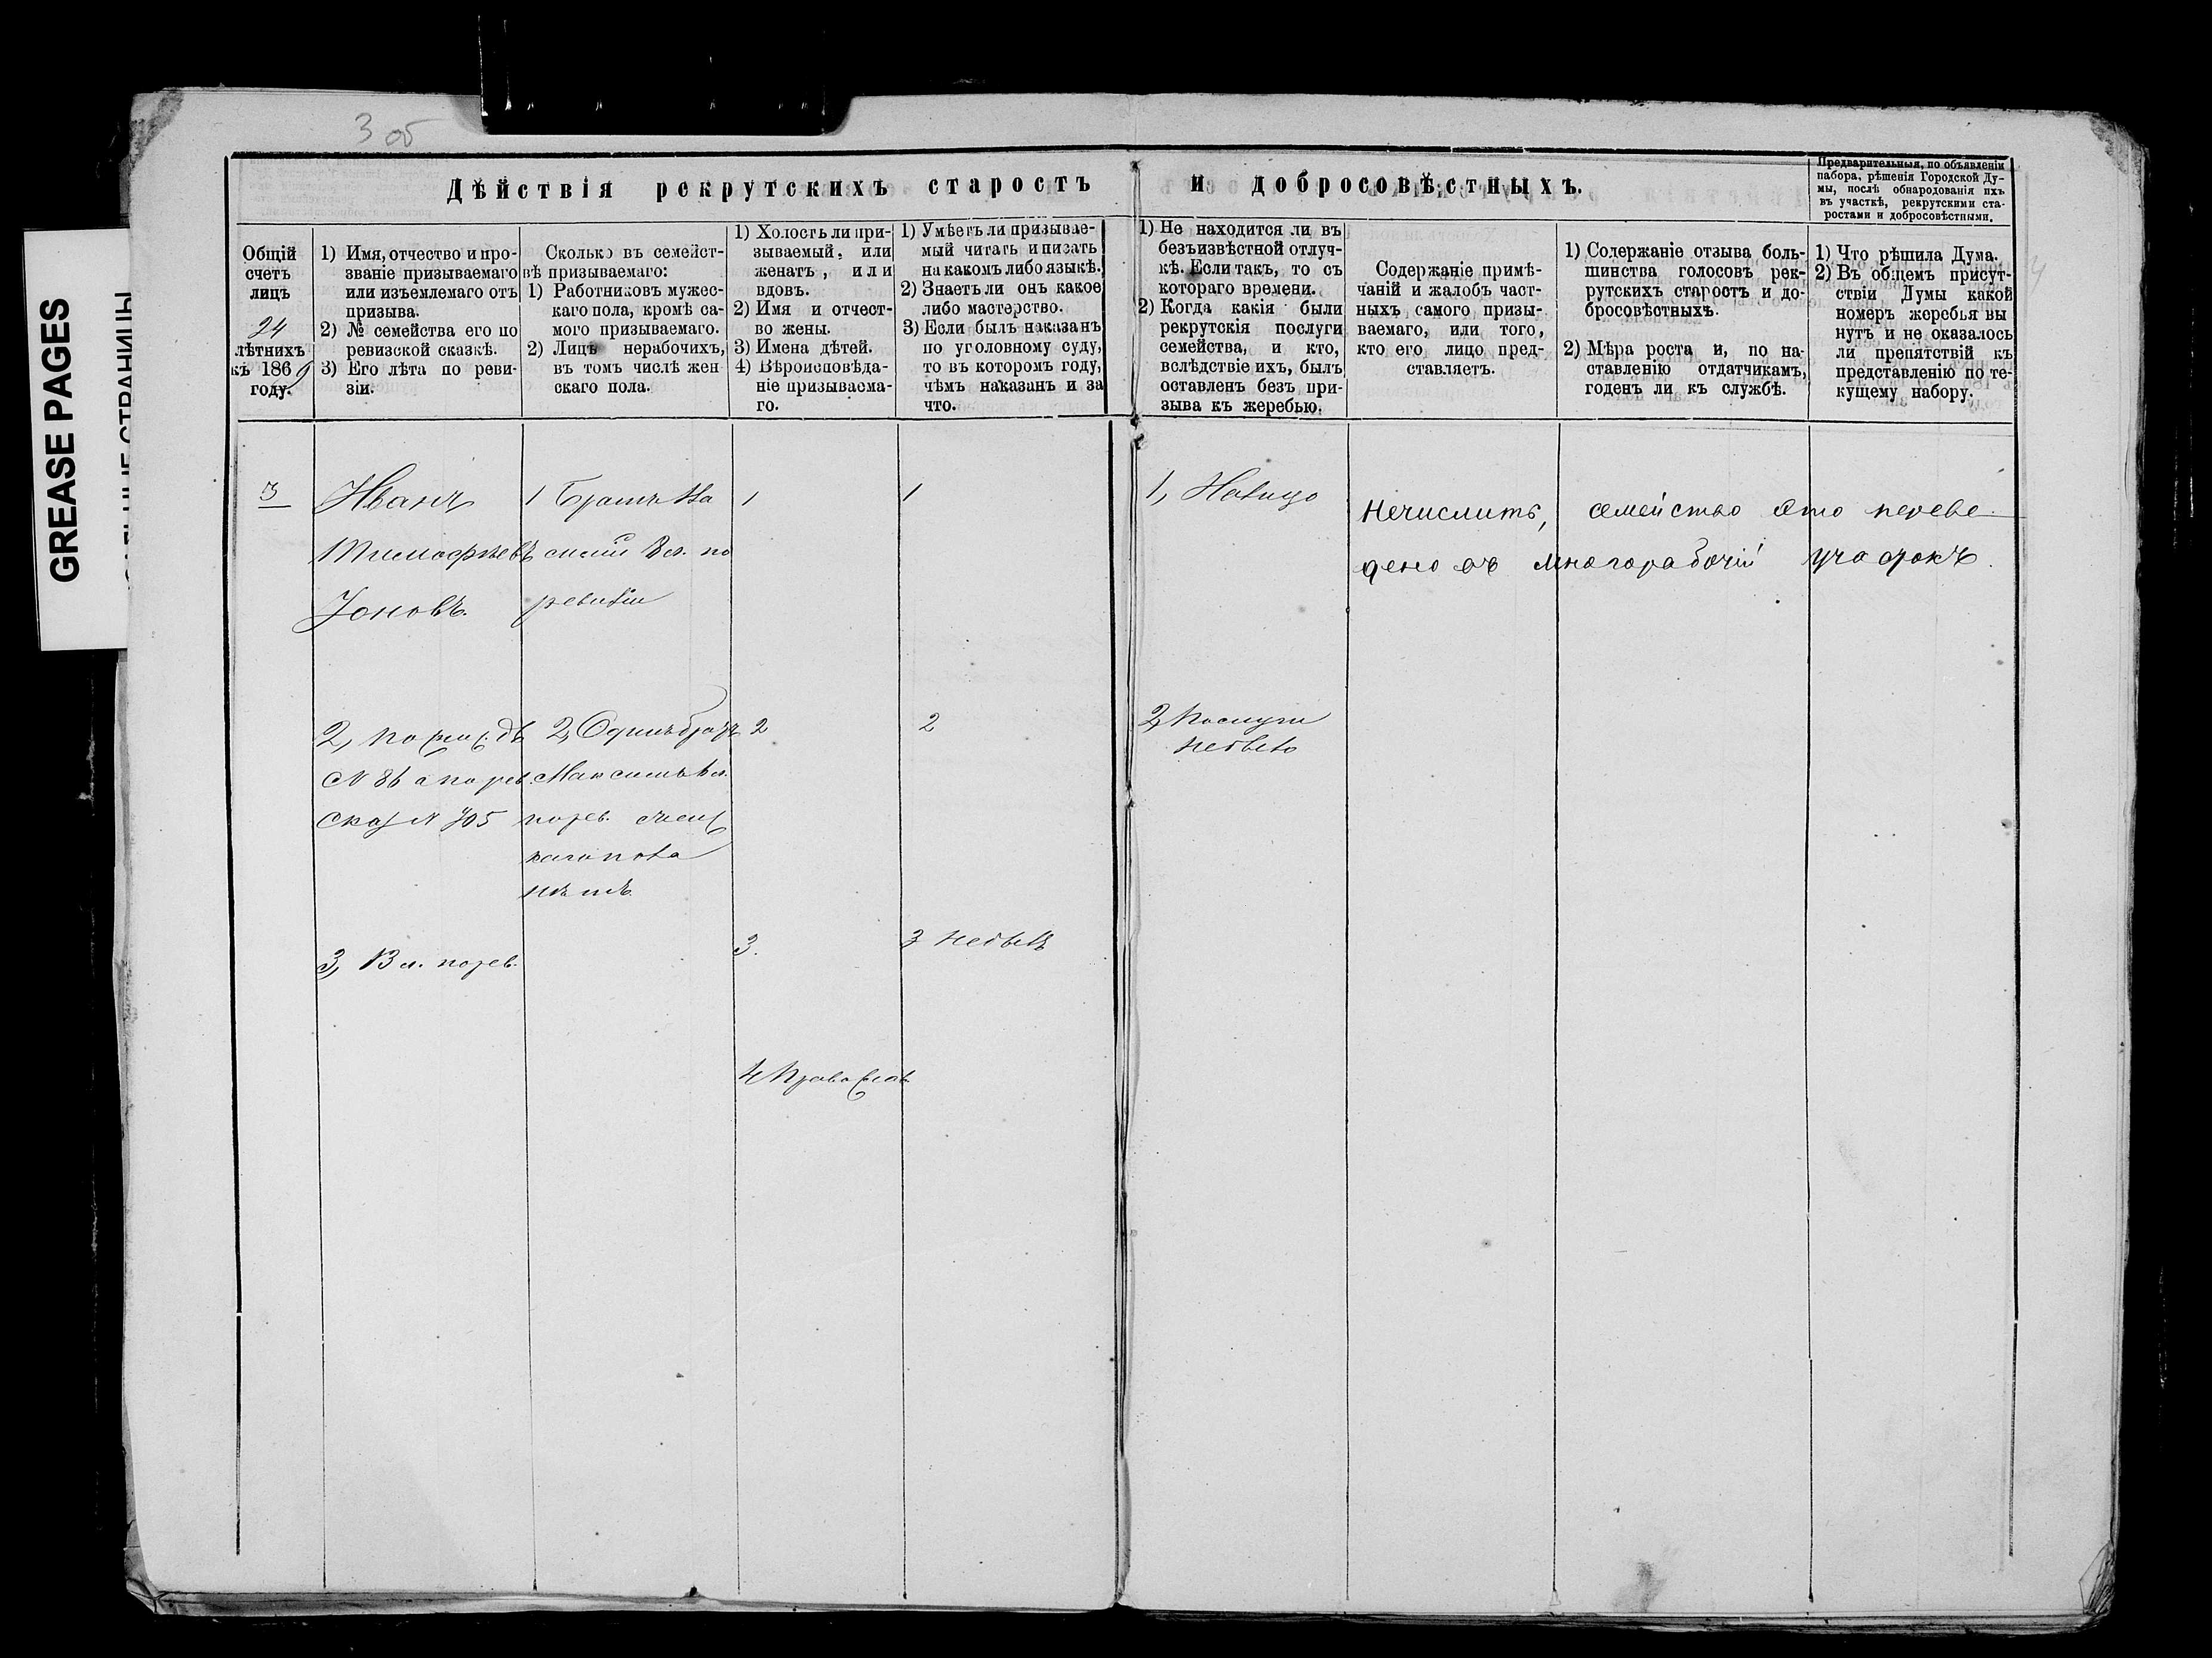 3 об
GREASE PAGES
Дѣйствія рекрутскихъ старостъ и добросовѣстныхъ.
Предварительныя, по объявленіи
набора, рѣшенія Городской Ду-
мы, послѣ обнародованія ихъ
въ участкѣ, рекрутскими ста-
ростами и добросовѣстными.
Общій
счетъ
лицъ
24
лѣтнихъ
къ 1869
году.
1) Имя, отчество и про-
званіе призываемаго
или изъемлемаго отъ
призыва.
2) № семейства его по
ревизской сказкѣ.
3) Его лѣта по реви-
зіи.
Сколько въ семейст-
вѣ призываемаго:
1) Работниковъ мужес-
каго пола, кромѣ са-
мого призываемаго.
2) Лицъ нерабочихъ,
въ томъ числѣ жен
скаго пола.
1) Холостъ ли при-
зываемый, или
женатъ, или
вдовъ.
2) Имя и отчест-
во жены.
3) Имена дѣтей.
4) Вѣроисповѣда-
ніе призываема-
го.
1) Умѣетъ ли призывае-
мый читать и писать
на какомъ либо языкѣ.
2) Знаетъ ли онъ какое
либо мастерство.
3) Если былъ наказанъ
по уголовному суду,
то въ которомъ году,
чѣмъ наказанъ и за
что.
1) Не находится ли въ
безъизвѣстной отлуч-
кѣ. Если такъ, то съ
котораго времени.
2) Когда какія были
рекрутскія послуги
семейства, и кто,
вслѣдствіе ихъ, былъ
оставленъ безъ при-
зыва къ жеребью.
Содержаніе примѣ-
чаній и жалобъ част-
ныхъ самого призы-
ваемаго, или того,
кто его лицо пред-
ставляетъ.
1) Содержаніе отзыва боль-
шинства голосовъ рек-
рутскихъ старостъ и до-
бросовѣстныхъ.
2) Мѣра роста и, по на-
ставленію отдатчикамъ,
годенъ ли къ службѣ.
1) Что рѣшила Дума.
2) Въ общемъ присут-
ствіи Думы какой
номеръ жеребья вы
нутъ и не оказалось
ли препятствій къ
представленію по те-
кущему набору.
3
Иванъ
Тимофѣевъ
Іоновъ.
2, по
N 86 а по рев.
Сказ N 705
3, 13 л. по рев.
1 Братъ Ва
силій 8 л. по
ревизіи
2, Одинъ братъ
Максимъ
по рев. Женс
каго пола
нѣтъ
1
2
3.
4 Православ
1
2
3 Небылъ
1,
2, Послуги
небыло
Нечислить, семейство это переве-
дено въ многорабочій участокъ.